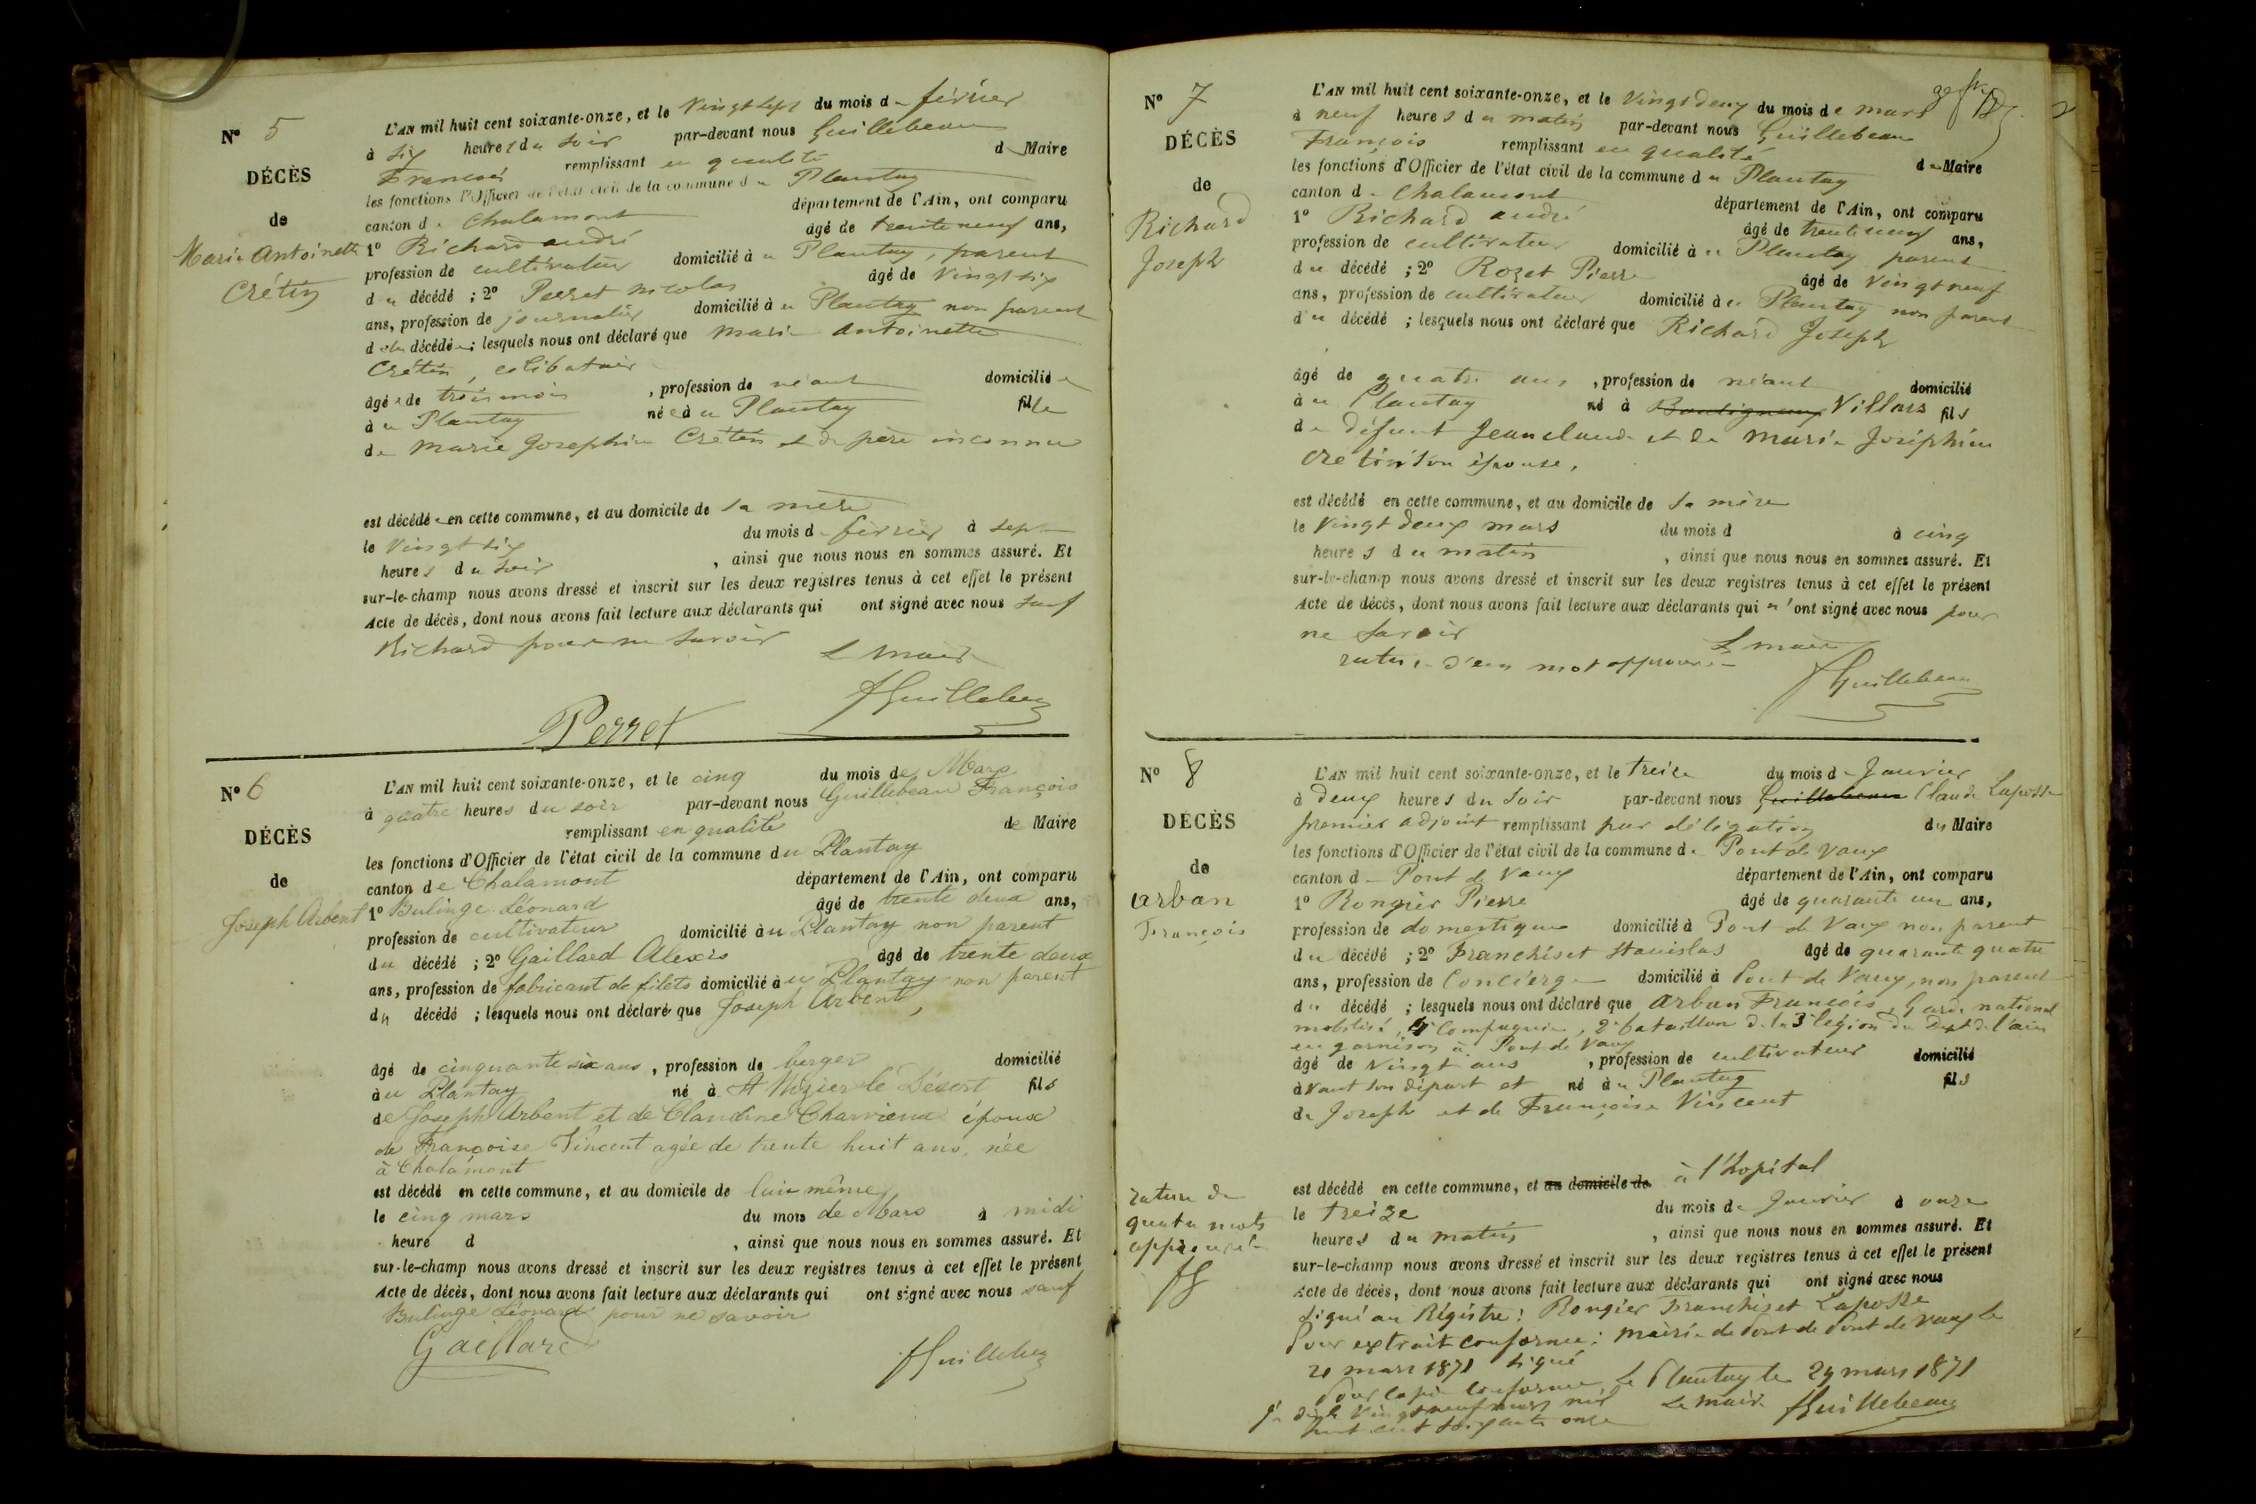 N° 5
DÉCÈS
de
Marie Antoinette
Crétin
L'AN mil huit cent soixante-onze, et le vingt sept du mois de février
à six heures du soir par-devant nous Guillebeau
François remplissant en qualité de Maire
les fonctions d'Officier de l'état civil de la commune du Plantay
canton de Chalamont département de l'Ain, ont comparu
1° Richard andré âgé de trente neuf ans,
profession de cultivateur domicilié à u Plantay, parent
du décédé ; 2° Perret nicolas âgé de vingt six
ans, profession de journalier domicilié à u Plantay non parent
d ela décédée ; lesquels nous ont déclaré que marie antoinette
Crétin, celibataire
âgée de trois mois , profession de néant domiciliée
à u Plantay née à u Plantay fille
de marie Josephine Crétin et de père inconnu
est décédée en cette commune, et au domicile de sa mère
le vingt six du mois de février à sept
heures du soir , ainsi que nous nous en sommes assuré. Et
sur-le-champ nous avons dressé et inscrit sur les deux registres tenus à cet effet le présent
Acte de décès, dont nous avons fait lecture aux déclarants qui ont signé avec nous sauf
Richard pour ne savoir
Le maire
Perret
fGuillebeau
N° 6
DÉCÈS
de
Joseph Arbent
L'AN mil huit cent soixante-onze, et le cinq du mois de Mars
à quatre heures du soir par-devant nous Guillebeau François
remplissant en qualité de Maire
les fonctions d'Officier de l'état civil de la commune du Plantay
canton de Chalamont département de l'Ain, ont comparu
1° Bulinge Léonard âgé de trente deux ans,
profession de cultivateur domicilié à u Plantay non parent
du décédé ; 2° Gaillard Alexis âgé de trente deux
ans, profession de fabricant de filets domicilié à u Plantay non parent
du décédé ; lesquels nous ont déclaré que Joseph Arbent,
âgé de cinquante six ans, profession de berger domicilié
à u Plantay né à St Nizier le Désert fils
de Joseph Arbent et de Claudine Charvieux époux
de Françoise Vincent agée de trente huit ans, née
à Chalamont
est décédé en cette commune, et au domicile de lui même
le cinq mars du mois de Mars à midi
heure d , ainsi que nous nous en sommes assuré. Et
sur-le-champ nous avons dressé et inscrit sur les deux registres tenus à cet effet le présent
Acte de décès, dont nous avons fait lecture aux déclarants qui ont signé avec nous sauf
Bulinge Léonard pour ne savoir
Gaillard
fGuillebeau
N° 7
DÉCÈS
de
Richard
Joseph
L'AN mil huit cent soixante-onze, et le vingt deux du mois de mars
à neuf heures du matin par-devant nous Guillebeau
François remplissant en qualité de Maire
les fonctions d'Officier de l'état civil de la commune du Plantay
canton de Chalamont département de l'Ain, ont comparu
1° Richard andré âgé de trente neuf ans,
profession de cultivateur domicilié à u Plantay parent
du décédé ; 2° Rozet Pierre âgé de vingt neuf
ans, profession de cultivateur domicilié à u Plantay non parent
du décédé ; lesquels nous ont déclaré que Richard Joseph
âgé de quatre ans , profession de néant domicilié
à u Plantay né à Villars fils
de défunt Jean claude et de marie Joséphine
cretin son épouse,
est décédé en cette commune, et au domicile de sa mère
le vingt deux mars du mois d à cinq
heures du matin , ainsi que nous nous en sommes assuré. Et
sur-le-champ nous avons dressé et inscrit sur les deux registres tenus à cet effet le présent
Acte de décès, dont nous avons fait lecture aux déclarants qui n'ont signé avec nous pour
ne savoir
rature d'un mot approuvée
Le maire
fGuillebeau
N° 8
DÉCÈS
de
arban
François
L'AN mil huit cent soixante-onze, et le treize du mois de Janvier
à deux heures du soir par-devant nous Guillebeau Claude Laposse
premier adjoint remplissant par délégation du Maire
les fonctions d'Officier de l'état civil de la commune de Pont de vaux
canton de Pont de vaux département de l'Ain, ont comparu
1° Rongier Pierre âgé de quarante un ans,
profession de domestique domicilié à Pont de vaux non parent
du décédé ; 2° Franchiset Stanislas âgé de quarante quatre
ans, profession de Concierge domicilié à Pont de vaux, non parent
du décédé ; lesquels nous ont déclaré que arban François, Garde national
mobilisé, 4e Compagnie, 2e bataillon de la 3e légion du Dept de l'ain
en garnison à Pont de Vaux
âgé de vingt ans , profession de cultivateur domicilié
avant son départ et né à u Plantay fils
de Joseph et de Françoise Vincent
est décédé en cette commune, et au domicile de à l'hopital
le treize du mois de Janvier à onze
heures du matin , ainsi que nous nous en sommes assuré. Et
sur-le-champ nous avons dressé et inscrit sur les deux registres tenus à cet effet le présent
Acte de décès, dont nous avons fait lecture aux déclarants qui ont signé avec nous
signé au Régistre : Rongier Franchiset Laposse
Pour extrait conforme : mairie de Pont de Pont de vaux le
21 mars 1871 signé
Pour copie conforme Le Plantay le 29 mars 1871
vingt neuf mars mil
huit cent soixante onze
Le maire fGuillebeau
rature de
quatre mots
approuvée
fG